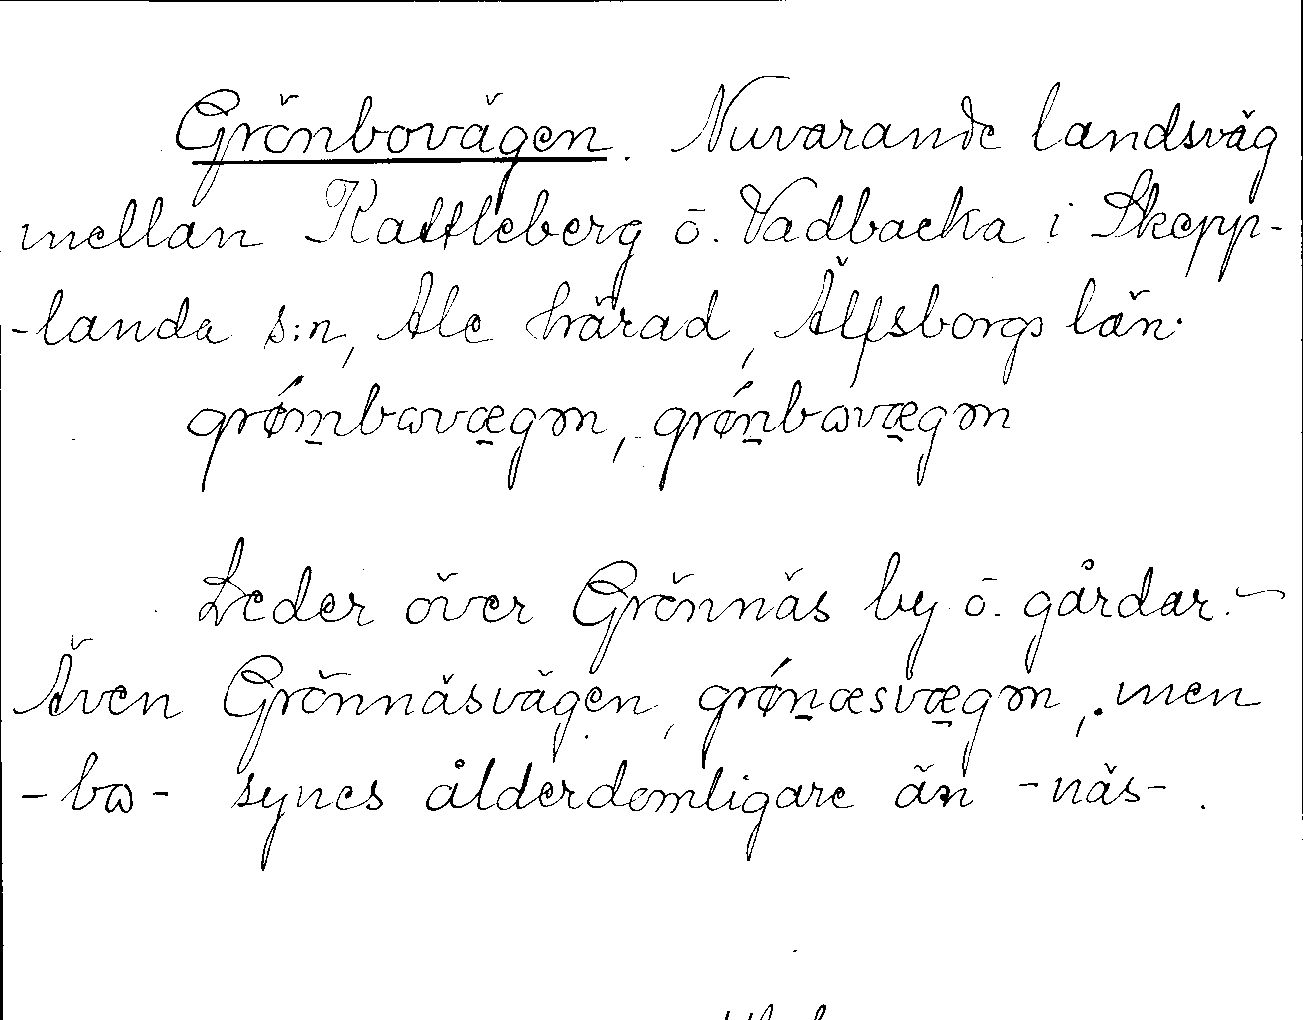 Grönbovägen. Nuvarande landsväg
mellan Kattleberg o. Vadbacka i Skepp-
-landa s:n, Ale härad, Älfsborgs län.
grǿm̱bωvæ̱gən, grǿṉbωvæ̱gən
Leder över Grönnäs by o. gårdar. –
Även Grönnäsvägen, grǿṉæsvæ̱gən, men
-bω- synes ålderdomligare än -näs-.